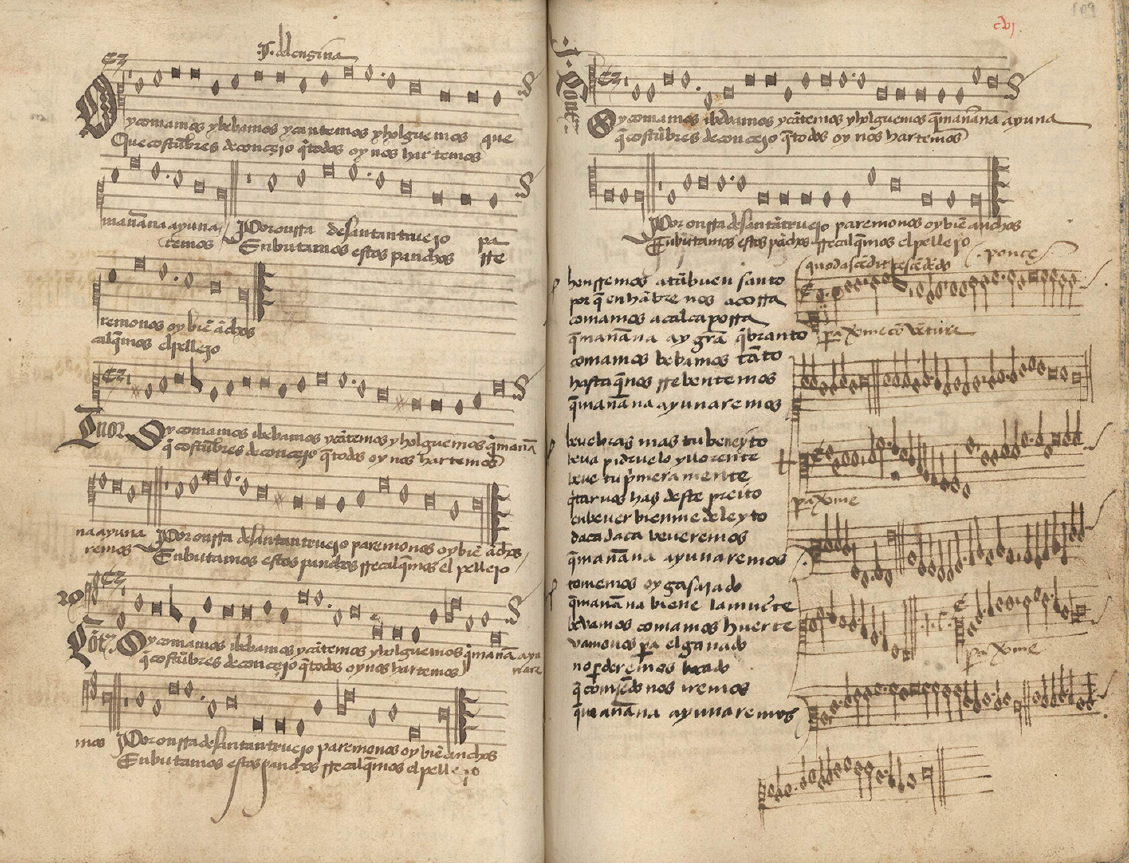 J. del enzina
Oy comamos y bebamos y cantemos y holguemos que
Que costũbres de concejo q̃ todos oy nos hartemos
mañana ayuna Por onrra de santantruejo pa
remos Enbutamos estos panchos rre
remonos oy biẽ ãchos
calq̃mos el pellejo
Tenor Oy comamos i bebamos y cãtemos y holguemos q̃ mañã
q̃ costũbres de concejo q̃ todos oy nos hartemos
na ayuna Por onrra de santantruejo paremonos oy biẽ ãchos
remos Enbutamos estos panchos rrecalq̃mos el pellejo
Cõt. Oy comamos i bebamos y cãtemos y holguemos q̃ mañã ayu
q̃ costũbres de concejo q̃ todos oy nos hartemos nare
mos Por onrra de santantruejo paremonos oy biẽ anchos
Enbutamos estos panchos rrecalq̃mos el pellejo
cvj
109
Oy comamos i bebamos y cãtemos y holguemos q̃ mañana ayuna
q̃ costũbres de concejo q̃ todos oy nos hartemos
Por onrra de santãtruejo paremonos oy biẽ anchos
Enbutamos estos pãchos rrecalq̃mos el pellejo
honrremos a tã buen santo
por q̃ en hãbre nos acorra
comamos a calca porra
q̃ mañana ay grã q̃branto
comamos bebamos tãto
hasta q̃ nos rrebentemos
q̃ mañana ayunaremos
beve bras mas tu beneyto
beva pidruelo y llorente
beve tu p̃meramente
q̃tarnos has deste preito
en bever bien me deleyto
daca daca beveremos
q̃ mañana ayunaremos
tomemos oy gasajado
q̃ mañana biene la muerte
bevamos comamos huerte
vamonos pa el ganado
no p̃deremos bocado
q̃ comiẽdo nos iremos
q̃ mañana ayunaremos
ponce